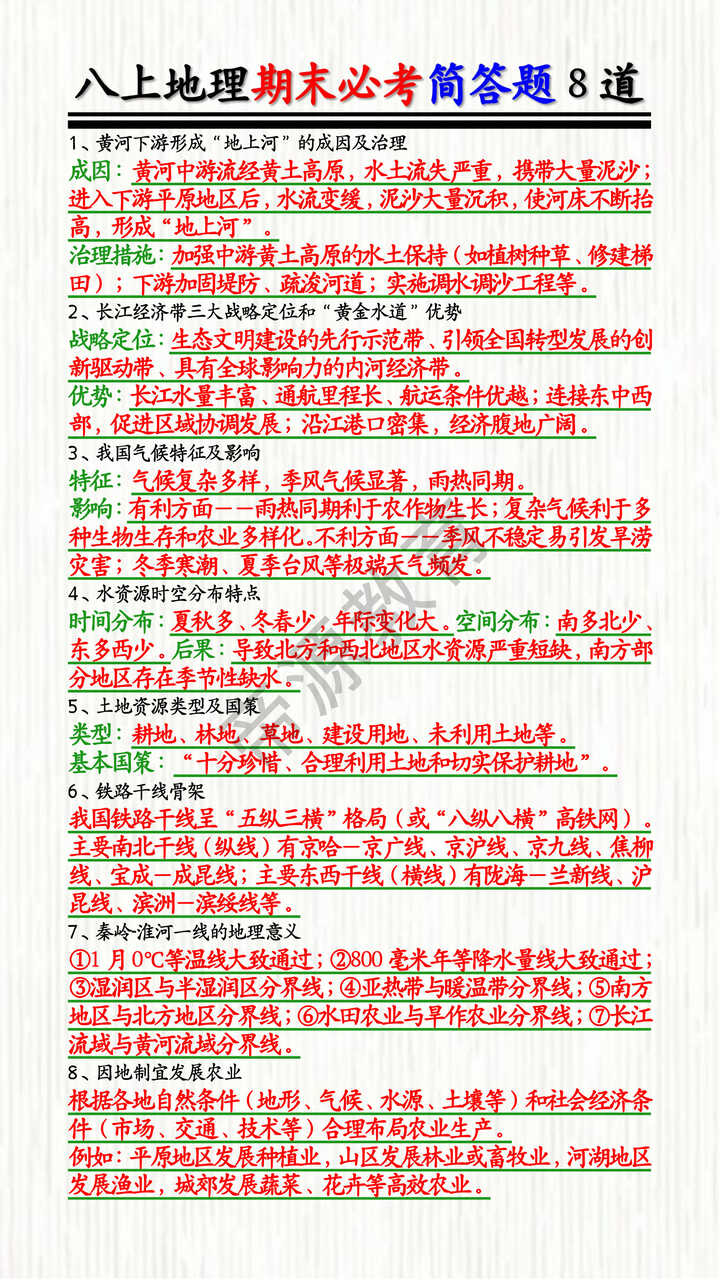 八上地理期末必考简答题8道
1、黄河下游形成“地上河”的成因及治理
成因：黄河中游流经黄土高原，水土流失严重，携带大量泥沙；
进入下游平原地区后，水流变缓，泥沙大量沉积，使河床不断抬
高，形成“地上河”。
治理措施：加强中游黄土高原的水土保持（如植树种草、修建梯
田）；下游加固堤防、疏浚河道；实施调水调沙工程等。
2、长江经济带三大战略定位和“黄金水道”优势
战略定位：生态文明建设的先行示范带、引领全国转型发展的创
新驱动带、具有全球影响力的内河经济带。
优势：长江水量丰富、通航里程长、航运条件优越；连接东中西
部，促进区域协调发展；沿江港口密集，经济腹地广阔。
3、我国气候特征及影响
特征：气候复杂多样，季风气候显著，雨热同期。
影响：有利方面——雨热同期利于农作物生长；复杂气候利于多
种生物生存和农业多样化。不利方面——季风不稳定易引发旱涝
灾害；冬季寒潮、夏季台风等极端天气频发。
4、水资源时空分布特点
时间分布：夏秋多、冬春少，年际变化大。空间分布：南多北少、
东多西少。后果：导致北方和西北地区水资源严重短缺，南方部
分地区存在季节性缺水。
5、土地资源类型及国策
类型：耕地、林地、草地、建设用地、未利用土地等。
基本国策：“十分珍惜、合理利用土地和切实保护耕地”。
6、铁路干线骨架
我国铁路干线呈“五纵三横”格局（或“八纵八横”高铁网）。
主要南北干线（纵线）有京哈－京广线、京沪线、京九线、焦柳
线、宝成－成昆线；主要东西干线（横线）有陇海－兰新线、沪
昆线、滨洲－滨绥线等。
7、秦岭-淮河一线的地理意义
①1月0℃等温线大致通过；②800毫米年等降水量线大致通过；
③湿润区与半湿润区分界线；④亚热带与暖温带分界线；⑤南方
地区与北方地区分界线；⑥水田农业与旱作农业分界线；⑦长江
流域与黄河流域分界线。
8、因地制宜发展农业
根据各地自然条件（地形、气候、水源、土壤等）和社会经济条
件（市场、交通、技术等）合理布局农业生产。
例如：平原地区发展种植业，山区发展林业或畜牧业，河湖地区
发展渔业，城郊发展蔬菜、花卉等高效农业。
帝源教育